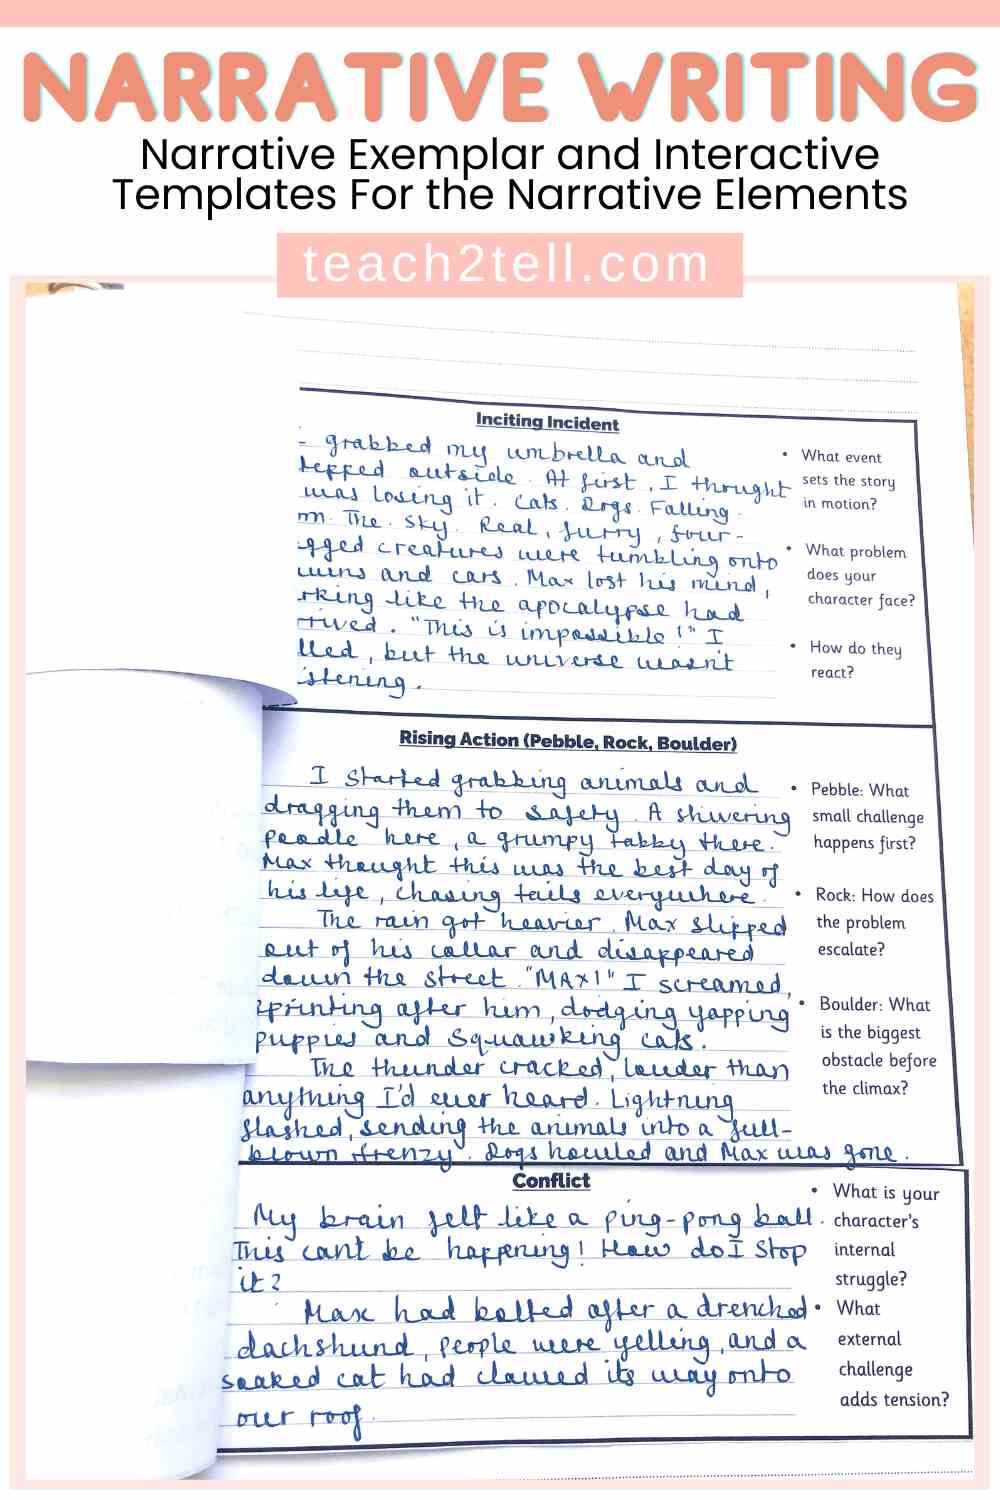 NARRATIVE WRITING
Narrative Exemplar and Interactive
Templates For the Narrative Elements
teach2tell.com
Inciting Incident
- grabbed my umbrella and
tepped outside. At first, I thought
was losing it. Cats. Dogs. Falling.
m. The. Sky. Real, furry, four-
gged creatures were tumbling onto
and cars. Max lost his mind,
rking like the apocalypse had
rrived. "This is impossible!" I
lled, but the universe wasn't
stening.
• What event
sets the story
in motion?
• What problem
does your
character face?
• How do they
react?
Rising Action (Pebble, Rock, Boulder)
I started grabbing animals and
dragging them to safety. A shivering
poodle here, a grumpy tabby there.
Max thought this was the best day of
his life, chasing tails everywhere.
The rain got heavier. Max slipped
out of his collar and disappeared
down the street. "MAX!" I screamed,
sprinting after him, dodging yapping
puppies and squawking cats.
The thunder cracked, louder than
anything I'd ever heard. Lightning
flashed, sending the animals into a full-
blown frenzy. Dogs howled and Max was gone.
• Pebble: What
small challenge
happens first?
• Rock: How does
the problem
escalate?
• Boulder: What
is the biggest
obstacle before
the climax?
Conflict
My brain felt like a ping-pong ball.
This can't be happening! How do I stop
it?
Max had bolted after a drenched
dachshund, people were yelling, and a
soaked cat had clawed its way onto
our roof.
• What is your
character's
internal
struggle?
• What
external
challenge
adds tension?